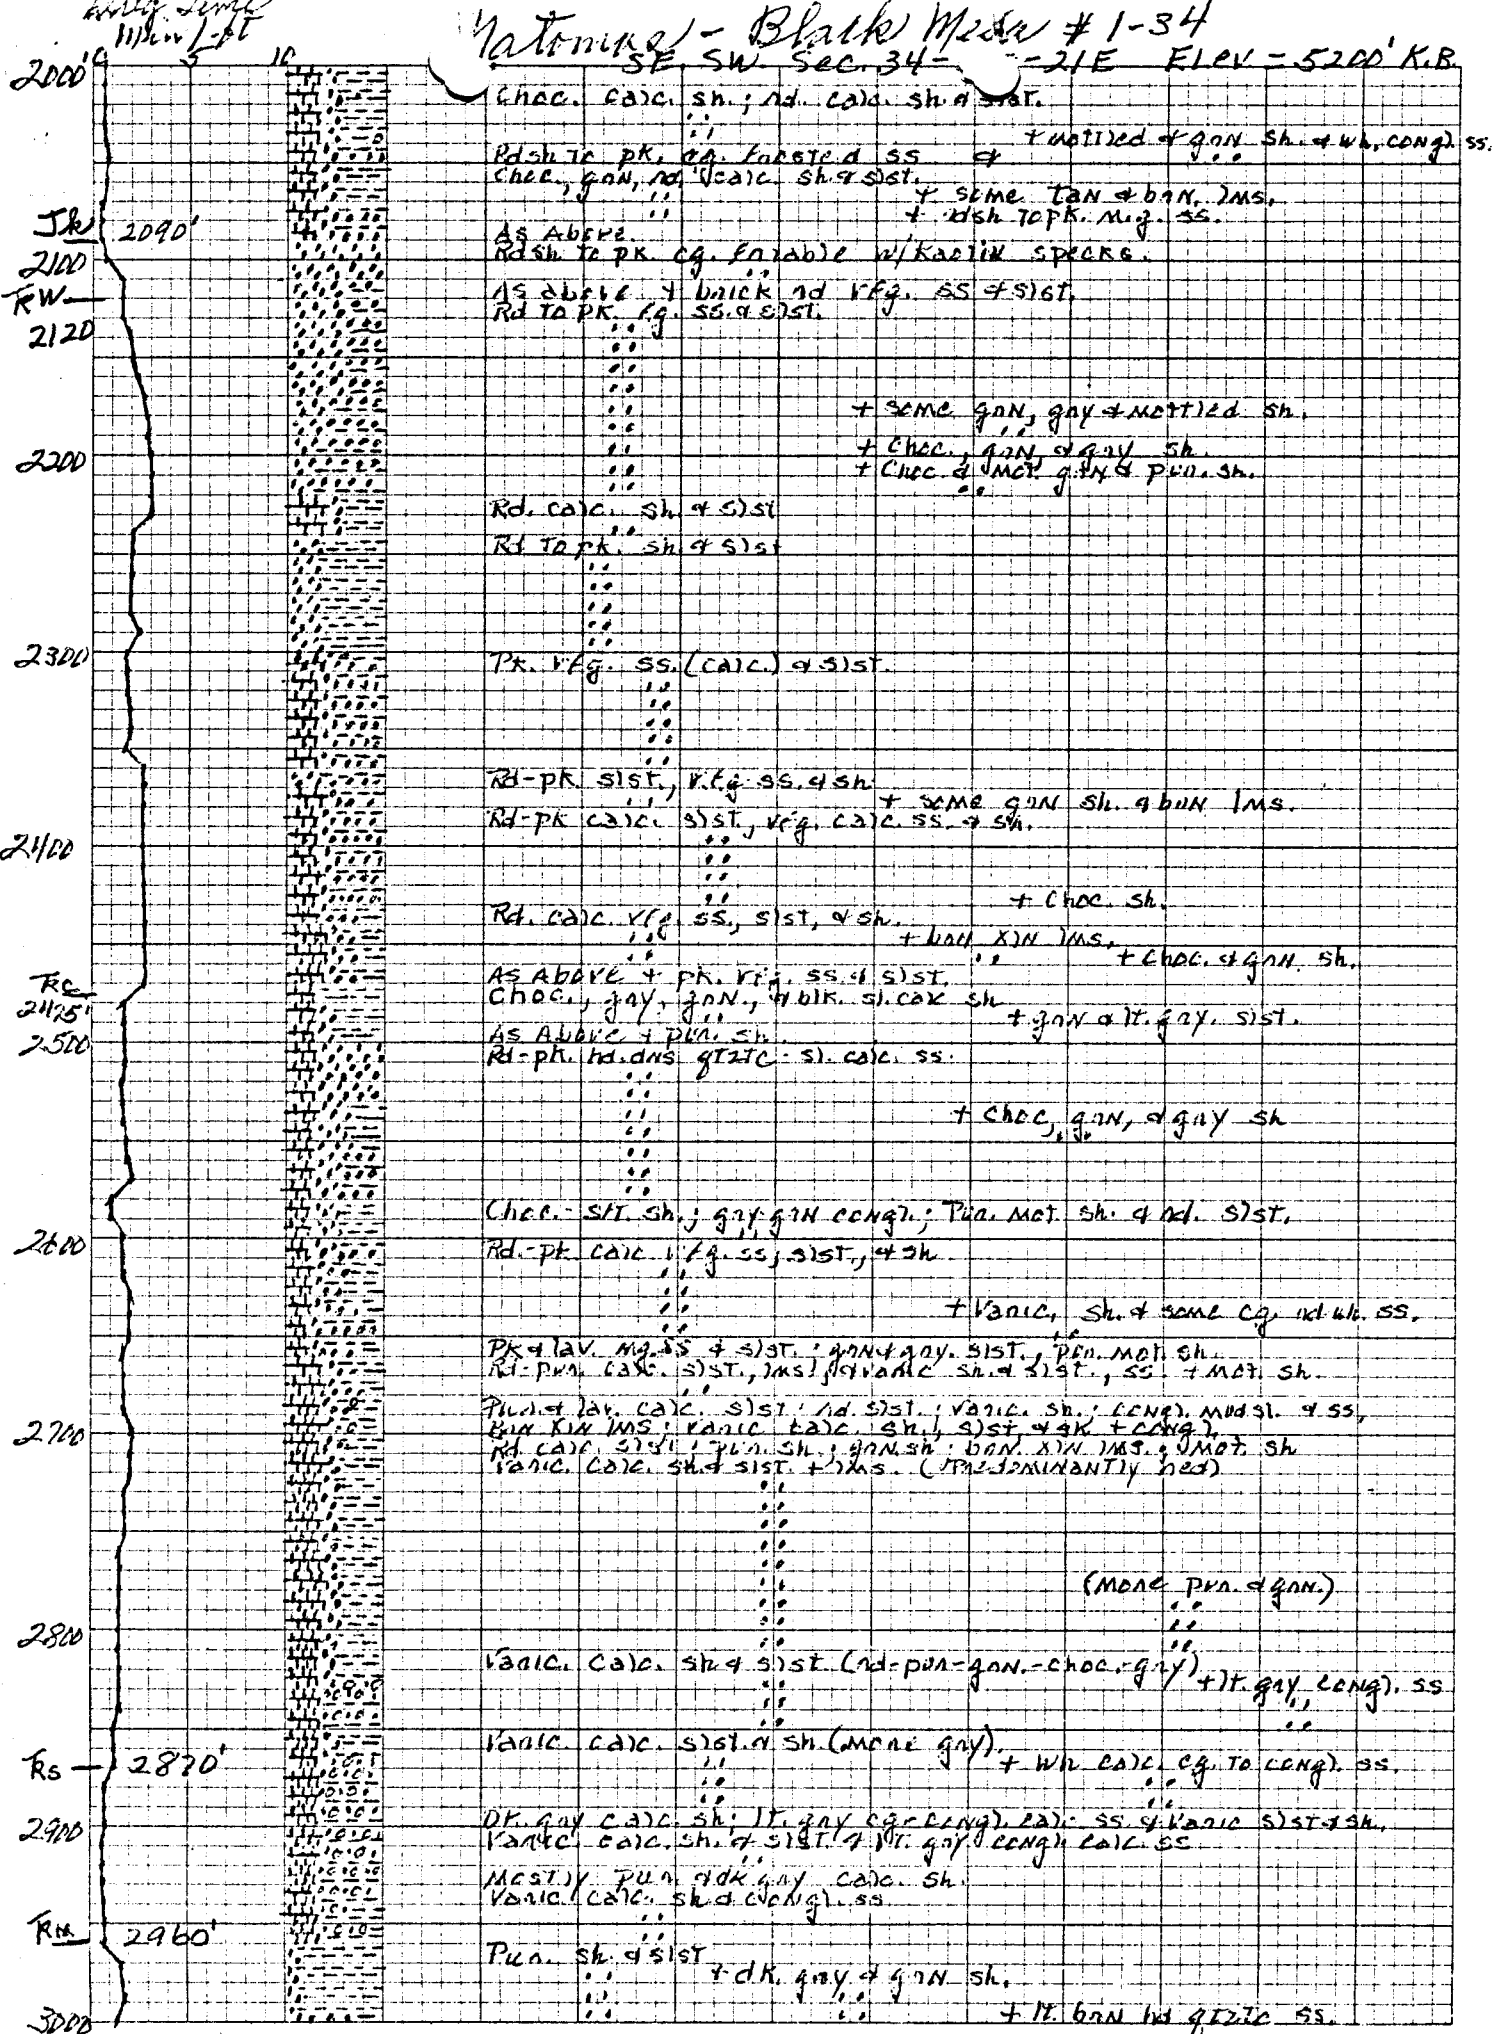 Drlg time
Min/ft
Natomas - Black Mesa # 1-34
SE. SW. Sec. 34- -21E Elev = 5200' K.B.
0 5 10
2000'
Choc. calc. sh.; rd. calc. sh & slst.
+ mottled & grn sh. & wh. congl. ss.
Rdsh to pk, cg. frosted ss &
Choc., grn, rd, calc. sh & slst.
+ some tan & brn. lms.
+ rdsh to pk. m.g. ss.
Jk 2090'
As Above
Rdsh to pk. cg. friable w/kaolin specks.
2100
As above & brick rd vfg. ss & slst.
TRW
Rd to pk. fg. ss. & slst.
2120
+ some grn, gry & mottled sh.
+ Choc., grn, & gry sh.
2200
+ Choc. & mot. grn & pur. sh.
Rd. calc. sh & slst
Rd to pk. sh & slst
2300
Pk. vfg. ss. (calc.) & slst.
Rd-pk slst., v.fg ss. & sh
+ some grn sh. & brn lms.
Rd-pk calc. slst., vfg. calc. ss. & sh.
2400
+ choc. sh.
Rd. calc. vfg. ss., slst, & sh.
+ brn xln lms.
+ choc. & grn. sh.
As Above + pk. vfg. ss. & slst.
TRc
Choc., gry, grn., & blk. sl. calc sh
2475'
+ grn & lt. gry. slst.
As Above + pur. sh.
2500
Rd-pk. hd. dns qtztc - sl. calc. ss.
+ choc, grn, & gry sh
Choc.- slt. sh.; gry-grn congl.; Pur. mot. sh. & rd. slst.
2600
Rd.-pk. calc vfg. ss, slst., & sh
+ Varic. sh. & some cg. rd wh. ss.
Pk & lav. mg. ss & slst.; grn & gry. slst., pur. mot. sh.
Rd-pur. calc. slst., lms, & varic sh. & slst., ss. + mot. sh.
Pur. & lav. calc. slst; rd. slst.; varic. sh.; congl. mudsl. & ss.
2700
Brn xln lms; varic calc. sh., slst + congl.
Rd. calc. slst; pur. sh; grn. sh; brn. xln lms.; mot. sh
Varic. calc. sh & slst. + lms. (Predominantly red)
(more pur. & grn.)
2800
Varic. calc. sh & slst (rd-pur-grn.-choc.-gry)
+ lt. gry congl. ss
Varic. calc. slst. & sh (more gry)
+ wh calc. cg. to congl. ss.
TRs 2870'
Dk. gry calc. sh; lt. gry cg-congl. calc ss & varic slst & sh.
2900
Varic. calc. sh. & slst & lt. gry congl. calc. ss
Mostly pur & dk gry calc. sh.
Varic. calc. sh & congl. ss
TRM 2960'
Pur. sh & slst
+ dk. gry & grn sh.
3000
+ lt. brn hd qtztc ss.